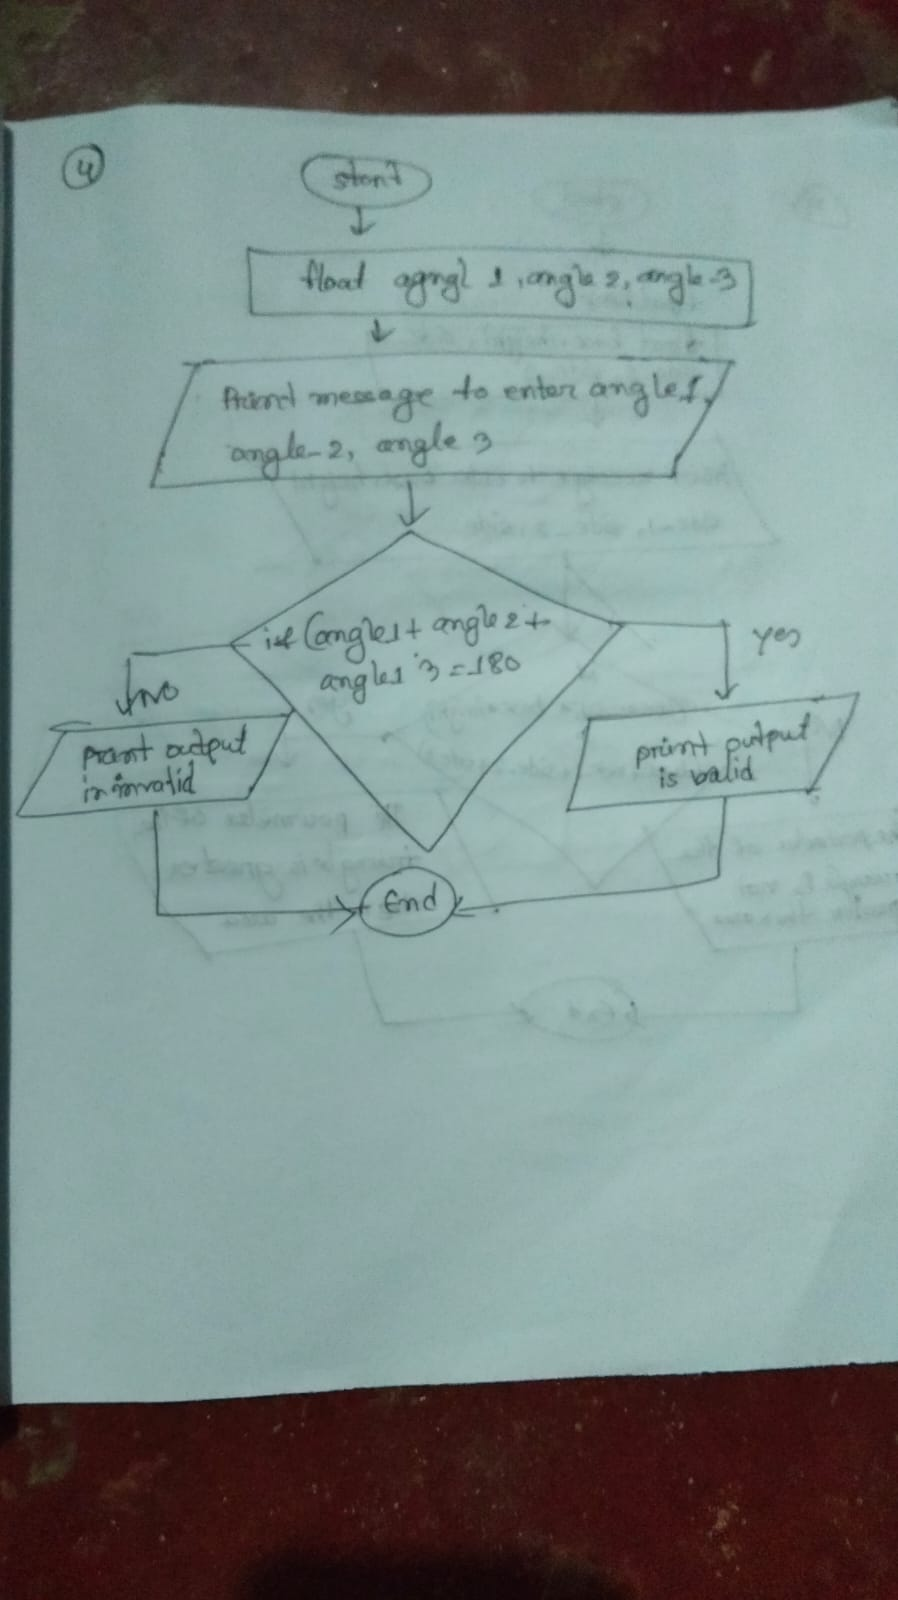 4
start
float agngl 1, angle 2, angle-3
Print message to enter angle 1,
angle-2, angle 3
if (angle1 + angle 2 +
angles 3 = 180
yes
NO
print output
in invalid
print output
is valid
End